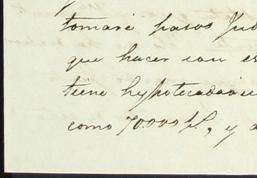 tomaré pasos Jud
que hacer con es
tiene hypotecada
como 70.000 $, y a